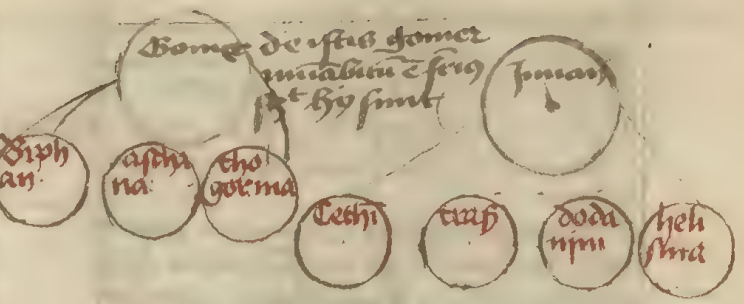 Gomer de istis gomer
Sed hii sunt
Juuan
Riph
an
ascha
na
tho
gorma
Cethi
tarsis
doda
nim
heli
sma